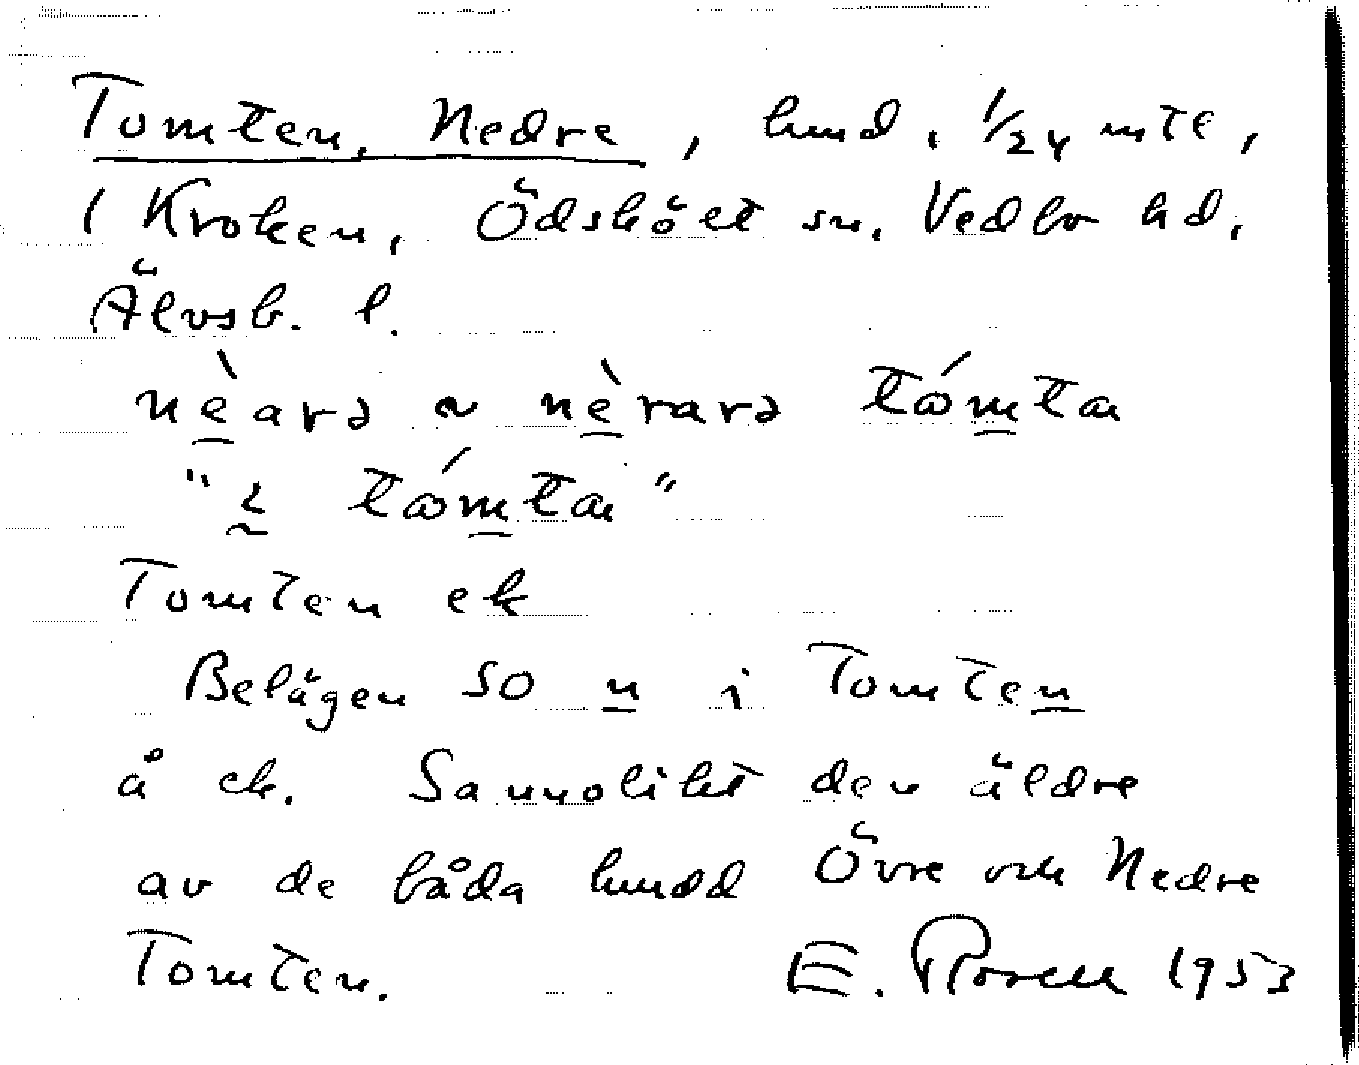 Tomten, Nedre, hmd, 1/24 mtl,
1 Kroken, Ödskölt sn, Vedbo hd,
Älvsb. l.
nèarə ~ nèrarə tómta
" tómta"
Tomten ek
Belägen SO n i Tomten
å ek. Sannolikt den äldre
av de båda hmdd Övre och Nedre
Tomten. E. Rosell 1953